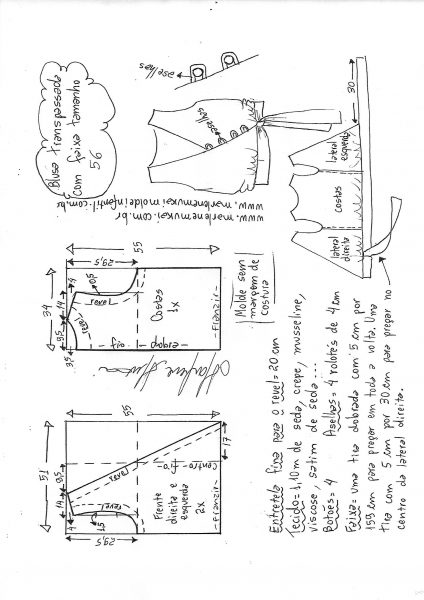 Blusa transpassada
com faixa tamanho
56
aselhas
aselhas
www.marlenemukai.com.br
www.marlenemukaimoldeinfantil.com.br
30
lateral
esquerda
costas
lateral
direita
55
29,5
34
14
9,5
3,5
4
revel
revel
Costas
1x
Franzir
dobra
fio
Molde sem
margem de
costura
Marlene Mukai
55
51
9,5
14
4
1,5
29,5
17
revel
revel
Centro
fio
Frente
direita e
esquerda
2x
Franzir
Entretela fina para o revel = 20 cm
Tecido = 1,10 m de seda, crepe, musseline,
viscose, satim de seda...
Botões = 4 Aselhas = 4 rolotês de 4 cm
Faixa = uma tira dobrada com 5 cm por
159 cm para pregar em toda a volta. Uma
tira com 5 cm por 30 cm para pregar no
centro da lateral direita.